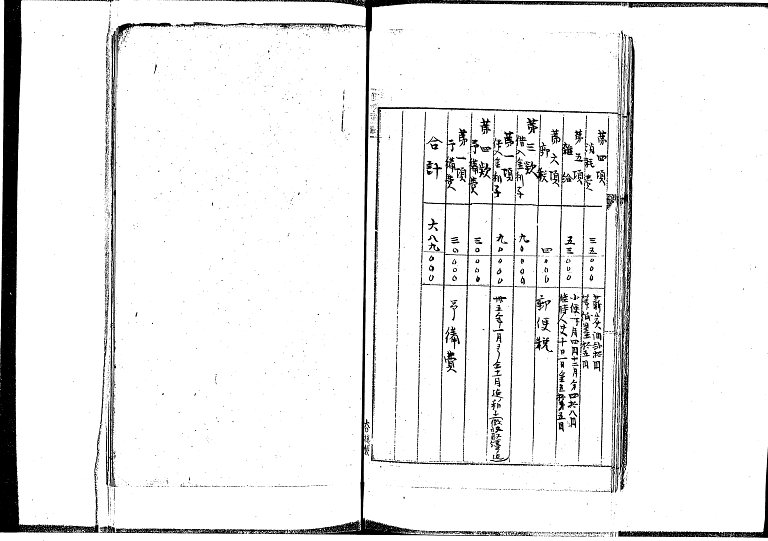 第四項 消耗費 三五〇〇〇 薪炭油拾円
筆紙墨拾五円
第五項 雑給 五三〇〇〇 小使一ヶ月四円十二月分四拾八円
臨時人夫十日
第六項 郵税 四〇〇〇 郵便税
第三款 借入金利子 九〇〇〇〇
第一項 借入金利子 九〇〇〇〇 卅五年一月ヨリ仝十二月迄利子
第四款 予備費 三〇〇〇〇
第一項 予備費 三〇〇〇〇 予備費
合計 六八九〇〇〇